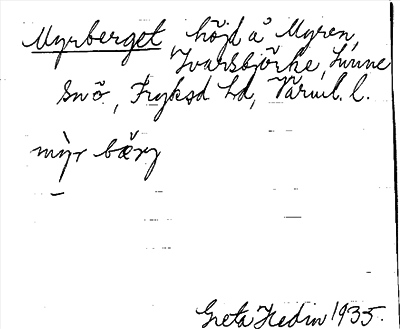 Myrberget, höjd å Myren,
Ivarsbjörke, Sunne
Sn, Fryksd. hd, Värml. l.
mỳr bærj
Greta Hedin 1935.